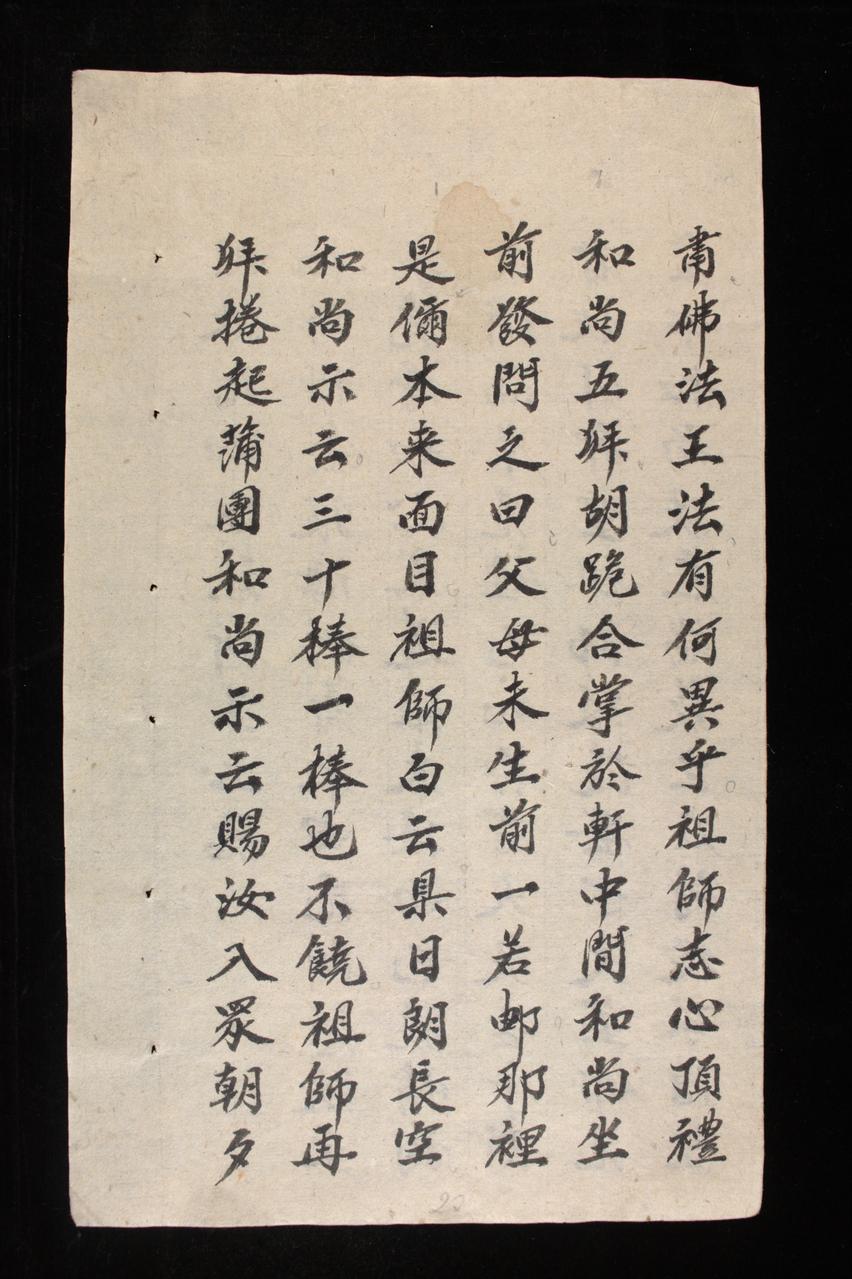 肅佛法王法有何異乎祖師志心頂禮
和尚五拜胡跪合掌於軒中間和尚坐
前發問之曰父母未生前一若邮那裡
是儞本来面目祖師白云杲日朗長空
和尚示云三十棒一棒也不饒祖師再
拜捲起蒲團和尚示云賜汝入眾朝夕
20